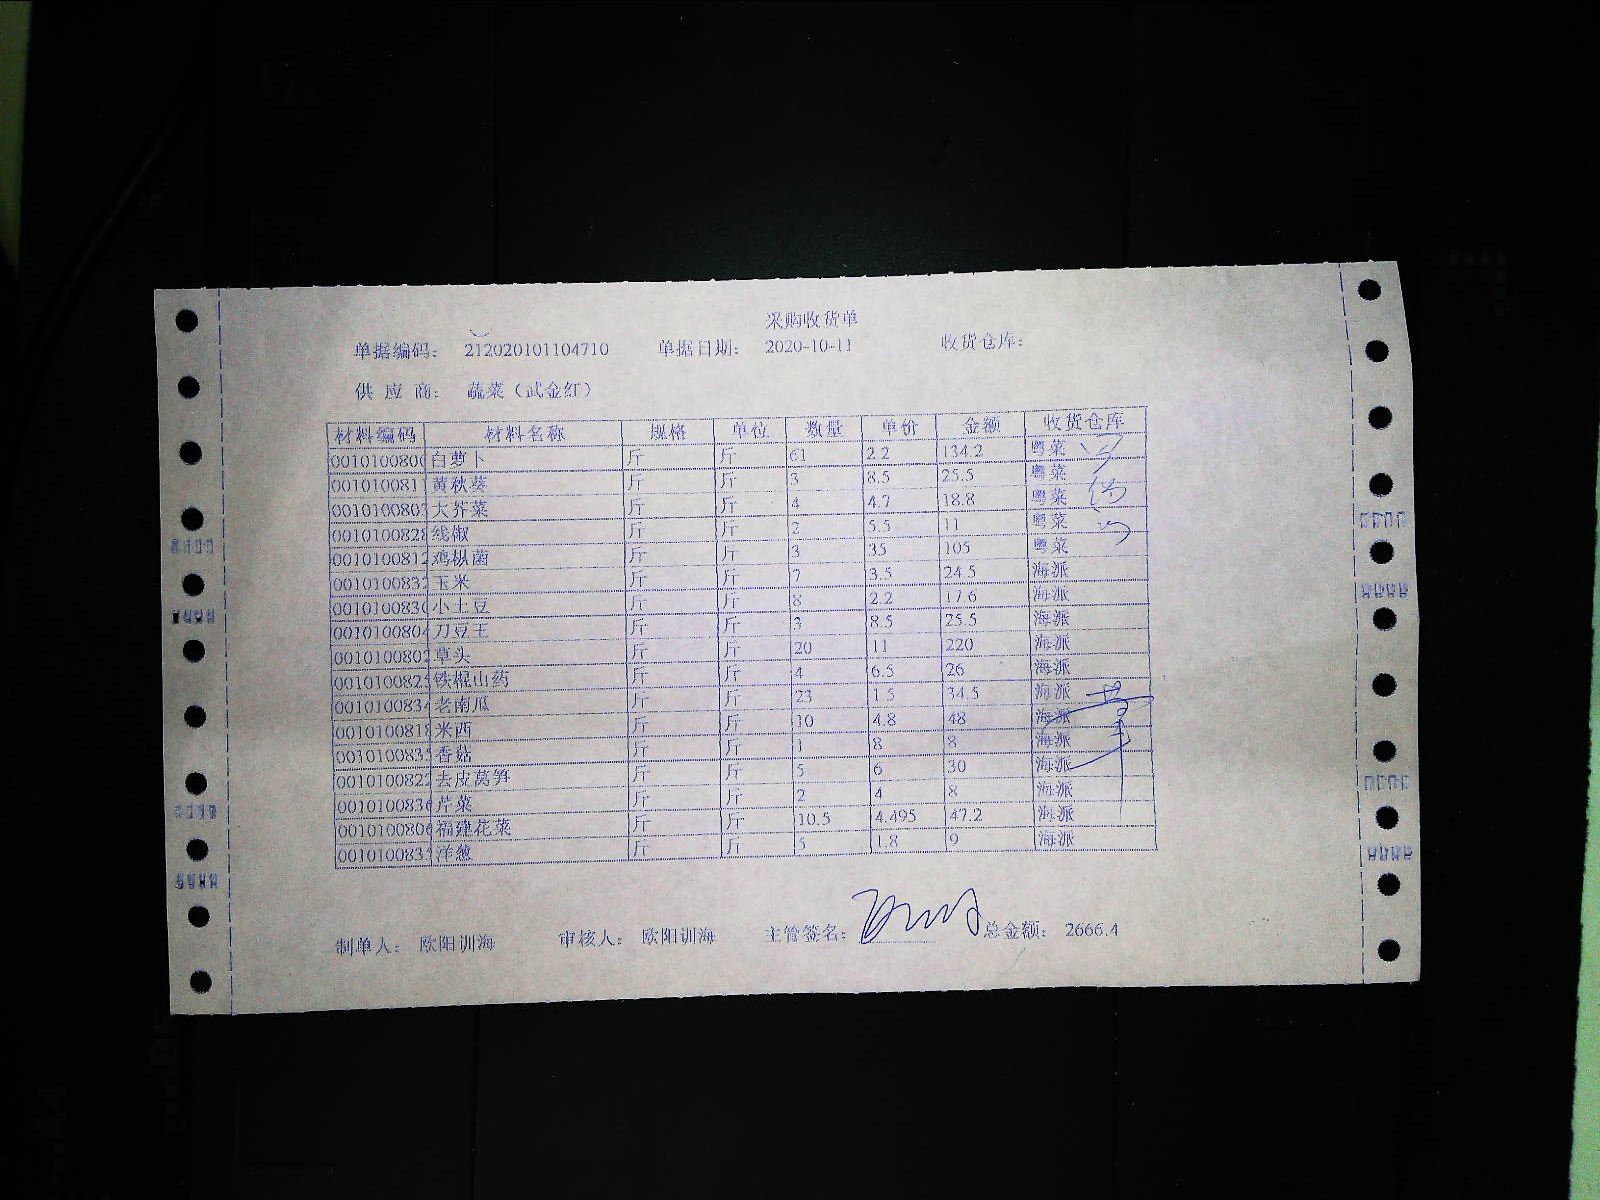 采购收货单
单据编码: 212020101104710 单据日期: 2020-10-11 收货仓库:
供 应 商: 蔬菜(武金红)
材料编码 材料名称 规格 单位 数量 单价 金额 收货仓库
0010100800 白萝卜 斤 斤 61 2.2 134.2 粤菜
0010100811 黄秋葵 斤 斤 3 8.5 25.5 粤菜
0010100803 大芥菜 斤 斤 4 4.7 18.8 粤菜
0010100828 线椒 斤 斤 2 5.5 11 粤菜
0010100812 鸡枞菌 斤 斤 3 35 105 粤菜
0010100832 玉米 斤 斤 7 3.5 24.5 海派
0010100830 小土豆 斤 斤 8 2.2 17.6 海派
0010100804 刀豆王 斤 斤 3 8.5 25.5 海派
0010100802 草头 斤 斤 20 11 220 海派
0010100825 铁棍山药 斤 斤 4 6.5 26 海派
0010100834 老南瓜 斤 斤 23 1.5 34.5 海派
0010100818 米西 斤 斤 10 4.8 48 海派
0010100835 香菇 斤 斤 1 8 8 海派
0010100822 去皮莴笋 斤 斤 5 6 30 海派
0010100836 芹菜 斤 斤 2 4 8 海派
0010100806 福建花菜 斤 斤 10.5 4.495 47.2 海派
001010083 洋葱 斤 斤 5 1.8 9 海派
制单人: 欧阳训海 审核人: 欧阳训海 主管签名: 总金额: 2666.4